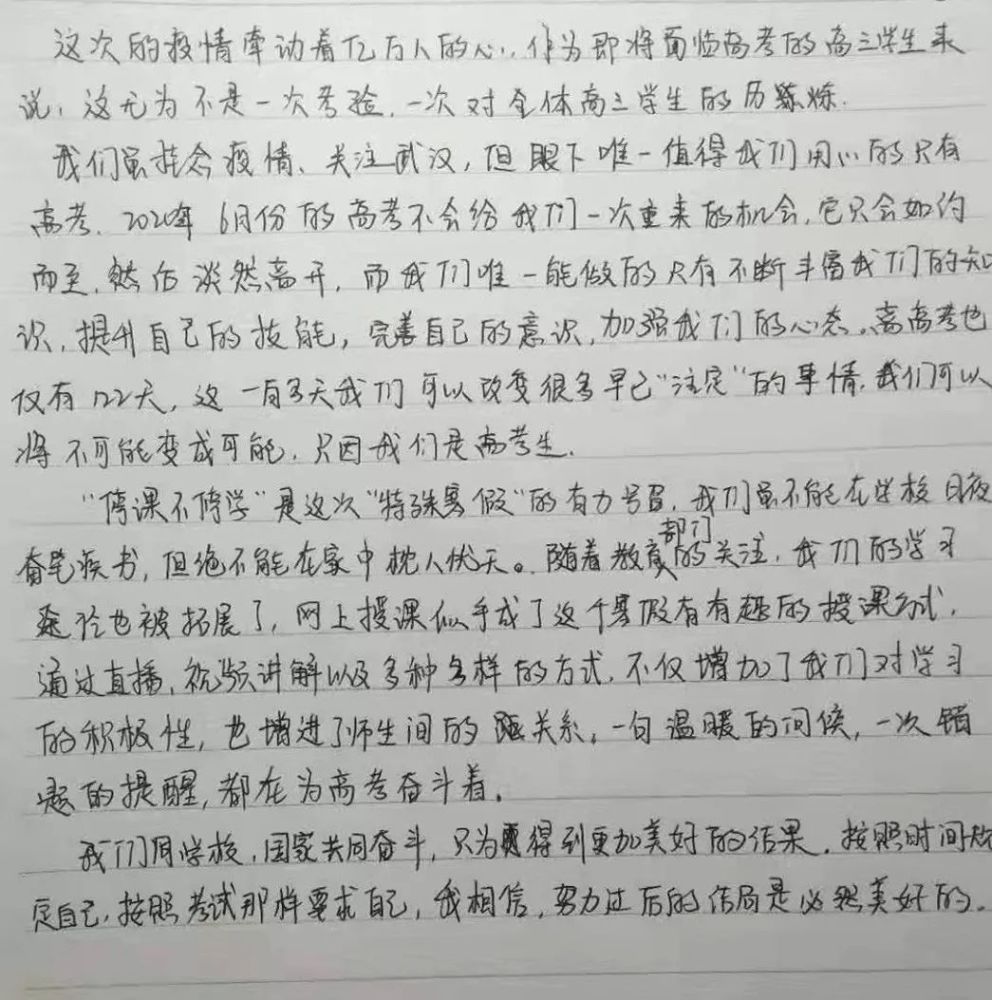 这次的疫情牵动着亿万人的心,作为即将面临高考的高三学生来
说,这无为不是一次考验,一次对全体高三学生的历练.
我们虽挂念疫情、关注武汉,但眼下唯一值得我们用心的只有
高考.2020年6月份的高考不会给我们一次重来的机会,它只会如约
而至,然后淡然离开,而我们唯一能做的只有不断丰富我们的知
识,提升自己的技能,完善自己的意识,加强我们的心态.离高考也
仅有122天,这一百多天我们可以改变很多早已“注定”的事情.我们可以
将不可能变成可能,只因我们是高考生.
“停课不停学”是这次“特殊寒假”的有力号召,我们虽不能在学校日夜
奋笔疾书,但绝不能在家中枕人伏天。随着教育部门的关注,我们的学习
途径也被拓展了,网上授课似乎成了这个寒假有有趣的授课方式,
通过直播,视频讲解以及多种多样的方式,不仅增加了我们对学习
的积极性,也增进了师生间的关系,一句温暖的问候,一次错
题的提醒,都在为高考奋斗着。
我们同学校,国家共同奋斗,只为得到更加美好的结果.按照时间
定自己,按照考试那样要求自己,我相信,努力过后的结局是必然美好的.